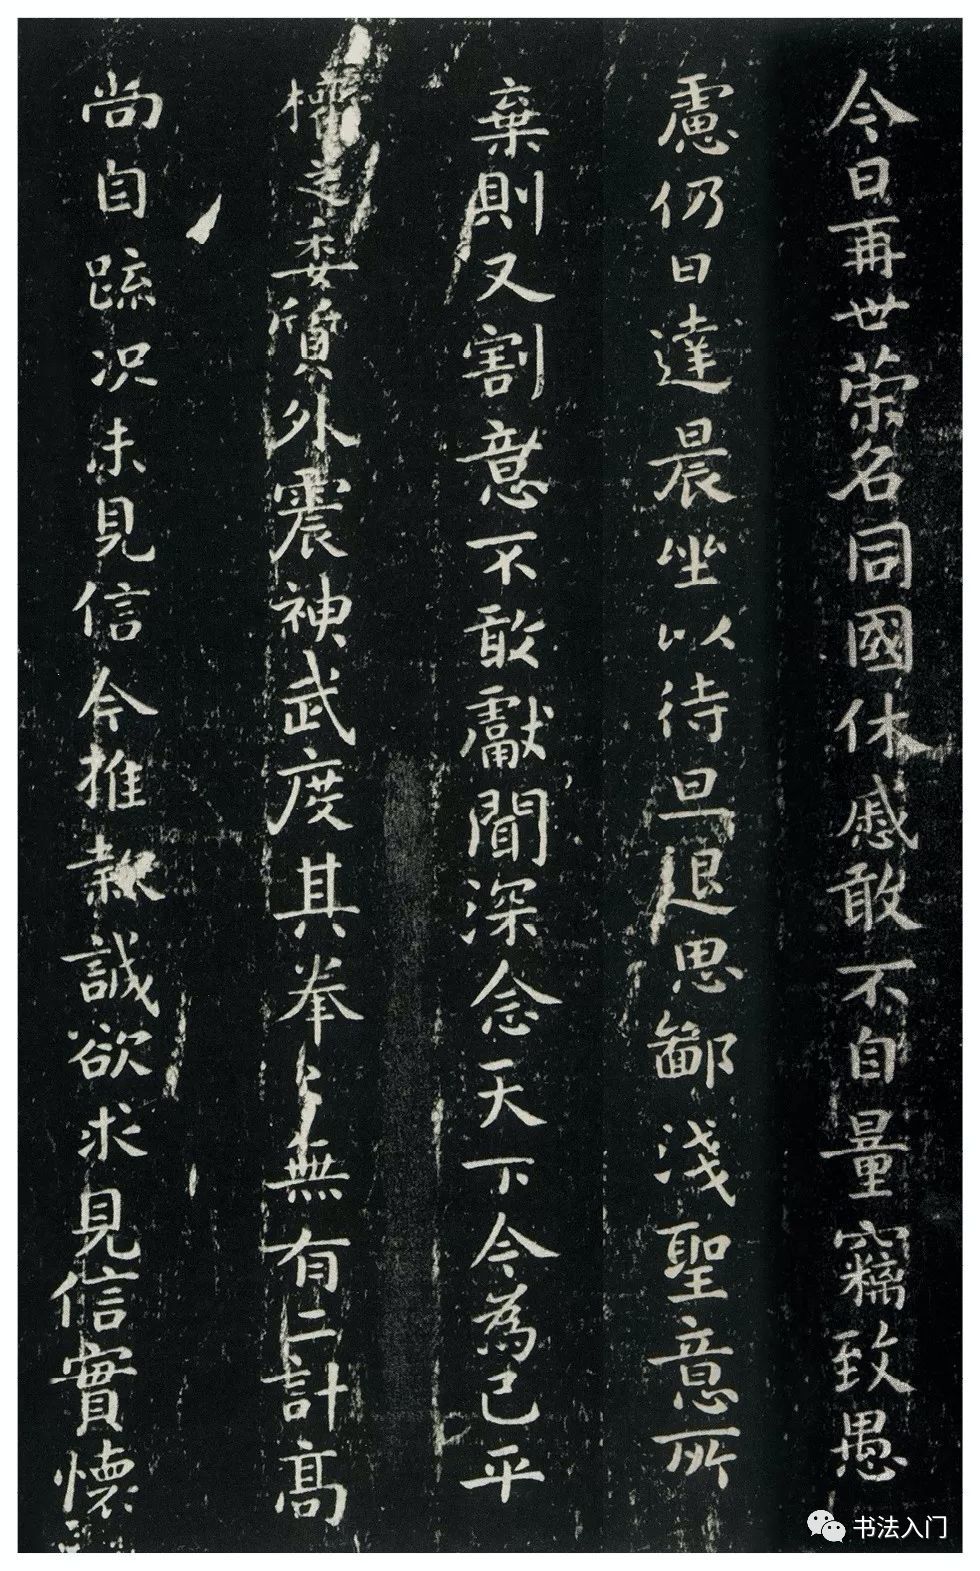 今日再世荣名同國休慼敢不自量竊致愚
慮仍日達晨坐以待旦退思鄙淺聖意所
棄則又割意不敢獻聞深念天下今為已平
權之委質外震神武度其拳〻無有二計高
尚自疏况未見信今推款誠欲求見信實懷
书法入门